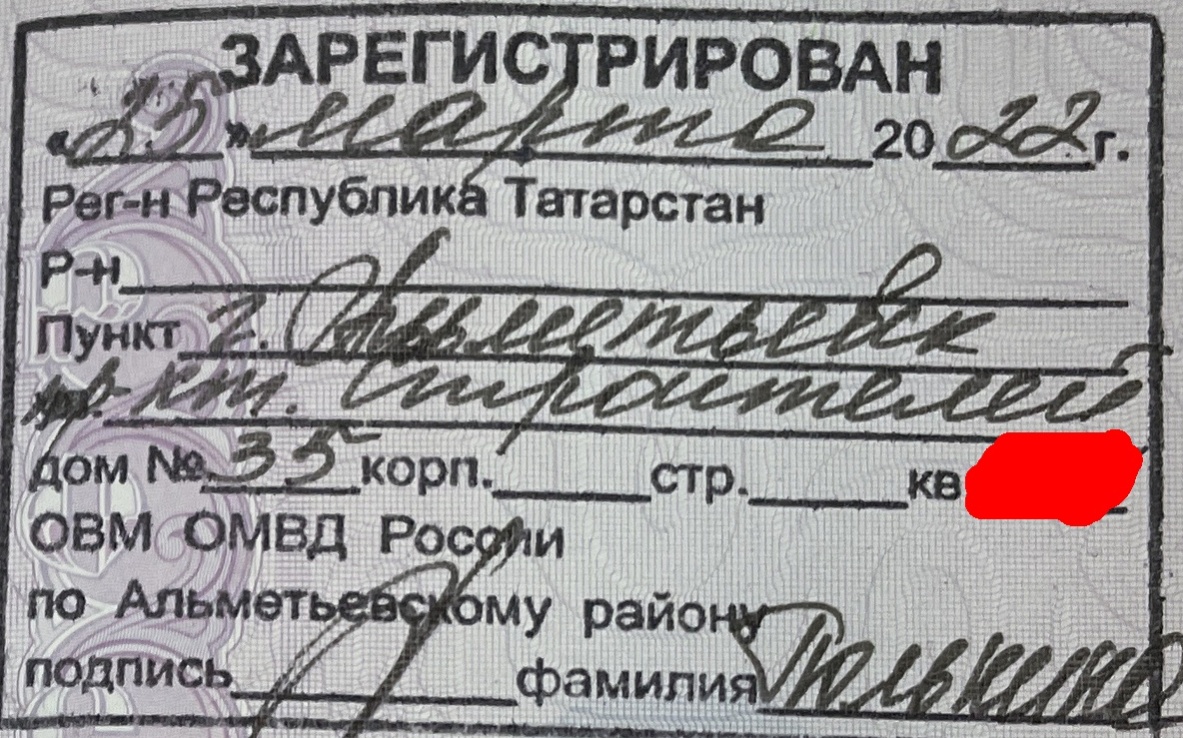 ЗАРЕГИСТРИРОВАН
«25» марта 2022 г.
Рег-н Республика Татарстан
Р-н
Пункт г. Альметьевск
пр-кт. Строителей
дом № 35 корп. стр. кв
ОВМ ОМВД России
по Альметьевскому району
подпись фамилия